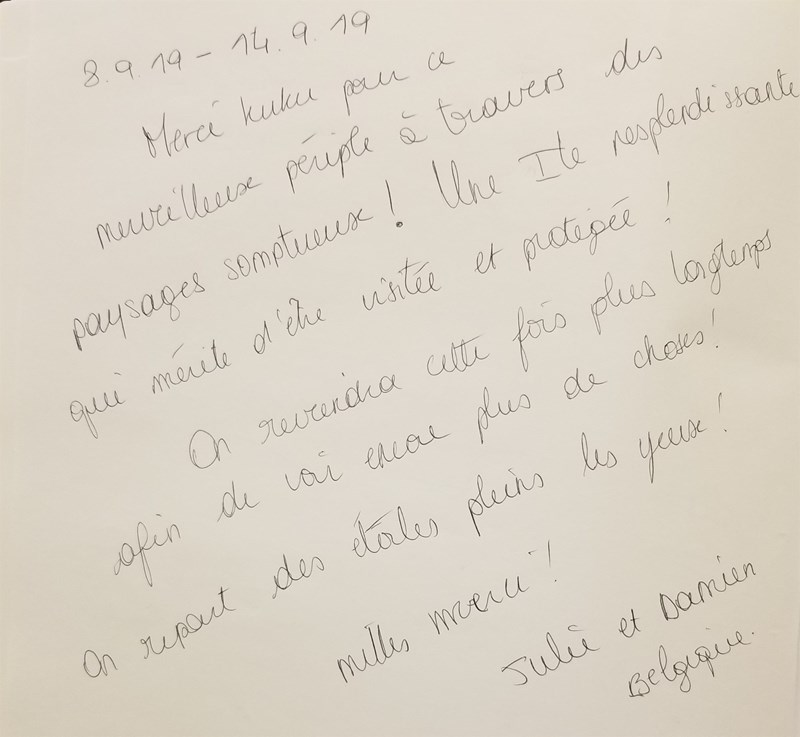 8.9.19 - 14.9.19
Merci kuku pour ce
merveilleux périple à travers des
paysages somptueux! Une Ile resplendissante
qui mérite d'être visitée et protégée!
On reviendra cette fois plus longtemps
afin de voir encore plus de choses!
On repart des étoiles pleins les yeux!
milles merci!
Julie et Damien
Belgique.